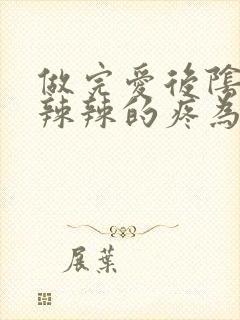 做完愛後陰
辣辣的疼為
展葉